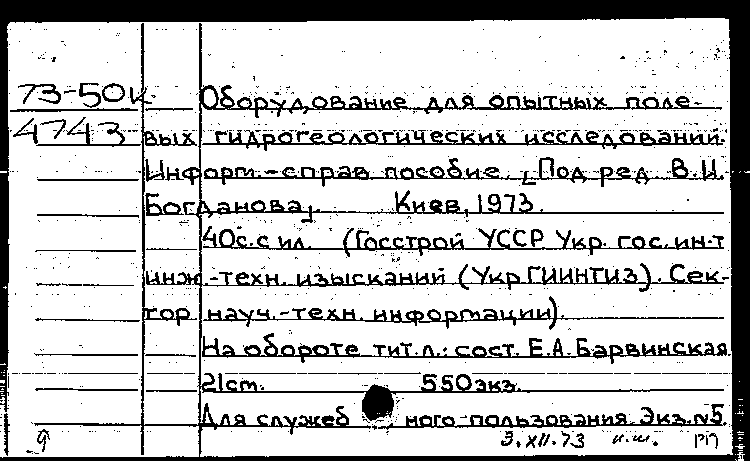 73-50к. Оборудование для опытных поле-
4743 вых гидрогеологических исследований.
Информ.-справ пособие. [Под ред В.И.
Богданова]. Киев, 1973.
40с. с ил. (Госстрой УССР Укр. гос. ин-т
инж.-техн. изысканий (УкрГИИНТИЗ). Сек-
тор науч.-техн. информации).
На обороте тит.л.: сост. Е.А.Барвинская
21cm. 550экз.
Для служебного пользования. Экз.№5
3.XII.73